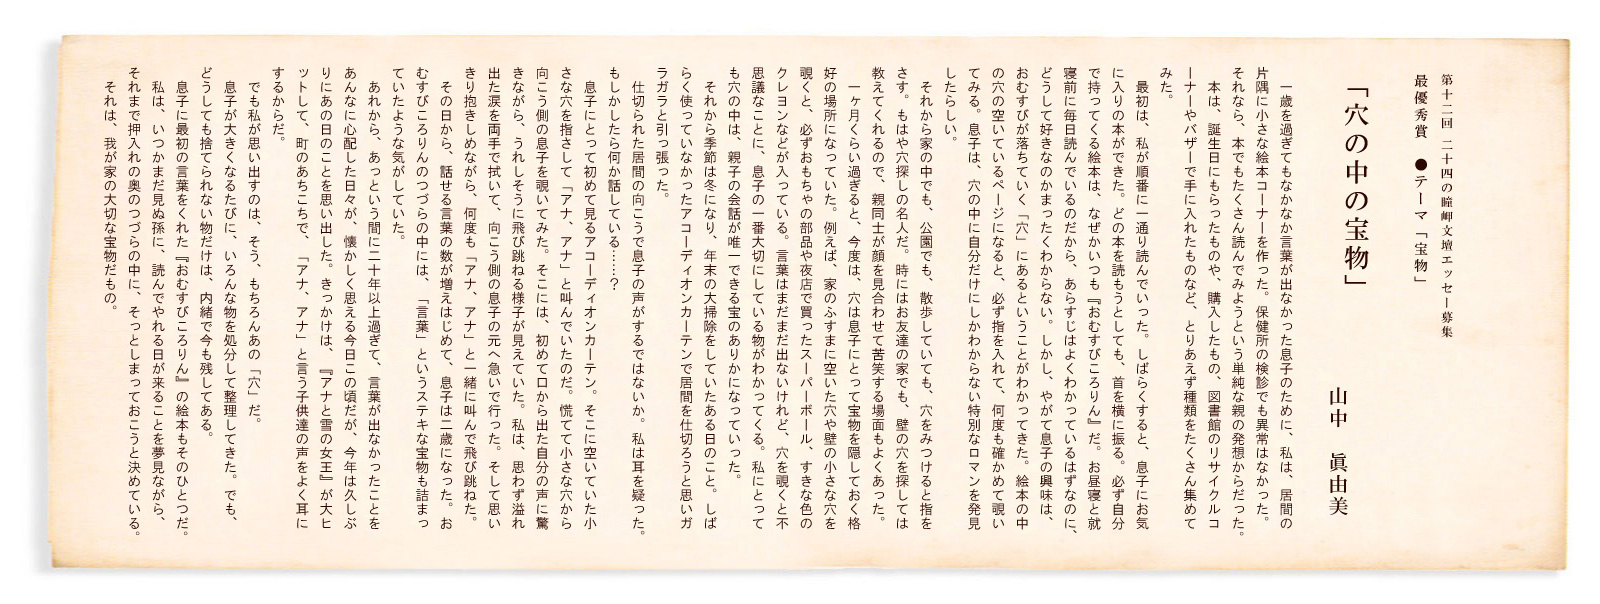 第十二回 二十四の瞳岬文壇エッセー募集
最優秀賞　●テーマ「宝物」
「穴の中の宝物」
山中　眞由美
　一歳を過ぎてもなかなか言葉が出なかった息子のために、私は、居間の
片隅に小さな絵本コーナーを作った。保健所の検診でも異常はなかった。
それなら、本でもたくさん読んでみようという単純な親の発想からだった。
　本は、誕生日にもらったものや、購入したもの、図書館のリサイクルコ
ーナーやバザーで手に入れたものなど、とりあえず種類をたくさん集めて
みた。
　最初は、私が順番に一通り読んでいった。しばらくすると、息子にお気
に入りの本ができた。どの本を読もうとしても、首を横に振る。必ず自分
で持ってくる絵本は、なぜかいつも『おむすびころりん』だ。お昼寝と就
寝前に毎日読んでいるのだから、あらすじはよくわかっているはずなのに、
どうして好きなのかまったくわからない。しかし、やがて息子の興味は、
おむすびが落ちていく「穴」にあるということがわかってきた。絵本の中
の穴の空いているページになると、必ず指を入れて、何度も確かめて覗い
てみる。息子は、穴の中に自分だけにしかわからない特別なロマンを発見
したらしい。
　それから家の中でも、公園でも、散歩していても、穴をみつけると指を
さす。もはや穴探しの名人だ。時にはお友達の家でも、壁の穴を探しては
教えてくれるので、親同士が顔を見合わせて苦笑する場面もよくあった。
　一ヶ月くらい過ぎると、今度は、穴は息子にとって宝物を隠しておく格
好の場所になっていた。例えば、家のふすまに空いた穴や壁の小さな穴を
覗くと、必ずおもちゃの部品や夜店で買ったスーパーボール、すきな色の
クレヨンなどが入っている。言葉はまだまだ出ないけれど、穴を覗くと不
思議なことに、息子の一番大切にしている物がわかってくる。私にとって
も穴の中は、親子の会話が唯一できる宝のありかになっていった。
　それから季節は冬になり、年末の大掃除をしていたある日のこと。しば
らく使っていなかったアコーディオンカーテンで居間を仕切ろうと思いガ
ラガラと引っ張った。
　仕切られた居間の向こうで息子の声がするではないか。私は耳を疑った。
もしかしたら何か話している……?
　息子にとって初めて見るアコーディオンカーテン。そこに空いていた小
さな穴を指さして「アナ、アナ」と叫んでいたのだ。慌てて小さな穴から
向こう側の息子を覗いてみた。そこには、初めて口から出た自分の声に驚
きながら、うれしそうに飛び跳ねる様子が見えていた。私は、思わず溢れ
出た涙を両手で拭いて、向こう側の息子の元へ急いで行った。そして思い
きり抱きしめながら、何度も「アナ、アナ」と一緒に叫んで飛び跳ねた。
　その日から、話せる言葉の数が増えはじめて、息子は二歳になった。お
むすびころりんのつづらの中には、「言葉」というステキな宝物も詰まっ
ていたような気がしていた。
　あれから、あっという間に二十年以上過ぎて、言葉が出なかったことを
あんなに心配した日々が、懐かしく思える今日この頃だが、今年は久しぶ
りにあの日のことを思い出した。きっかけは、『アナと雪の女王』が大ヒ
ットして、町のあちこちで、「アナ、アナ」と言う子供達の声をよく耳に
するからだ。
　でも私が思い出すのは、そう、もちろんあの「穴」だ。
　息子が大きくなるたびに、いろんな物を処分して整理してきた。でも、
どうしても捨てられない物だけは、内緒で今も残してある。
　息子に最初の言葉をくれた『おむすびころりん』の絵本もそのひとつだ。
　私は、いつかまだ見ぬ孫に、読んでやれる日が来ることを夢見ながら、
それまで押入れの奥のつづらの中に、そっとしまっておこうと決めている。
　それは、我が家の大切な宝物だもの。